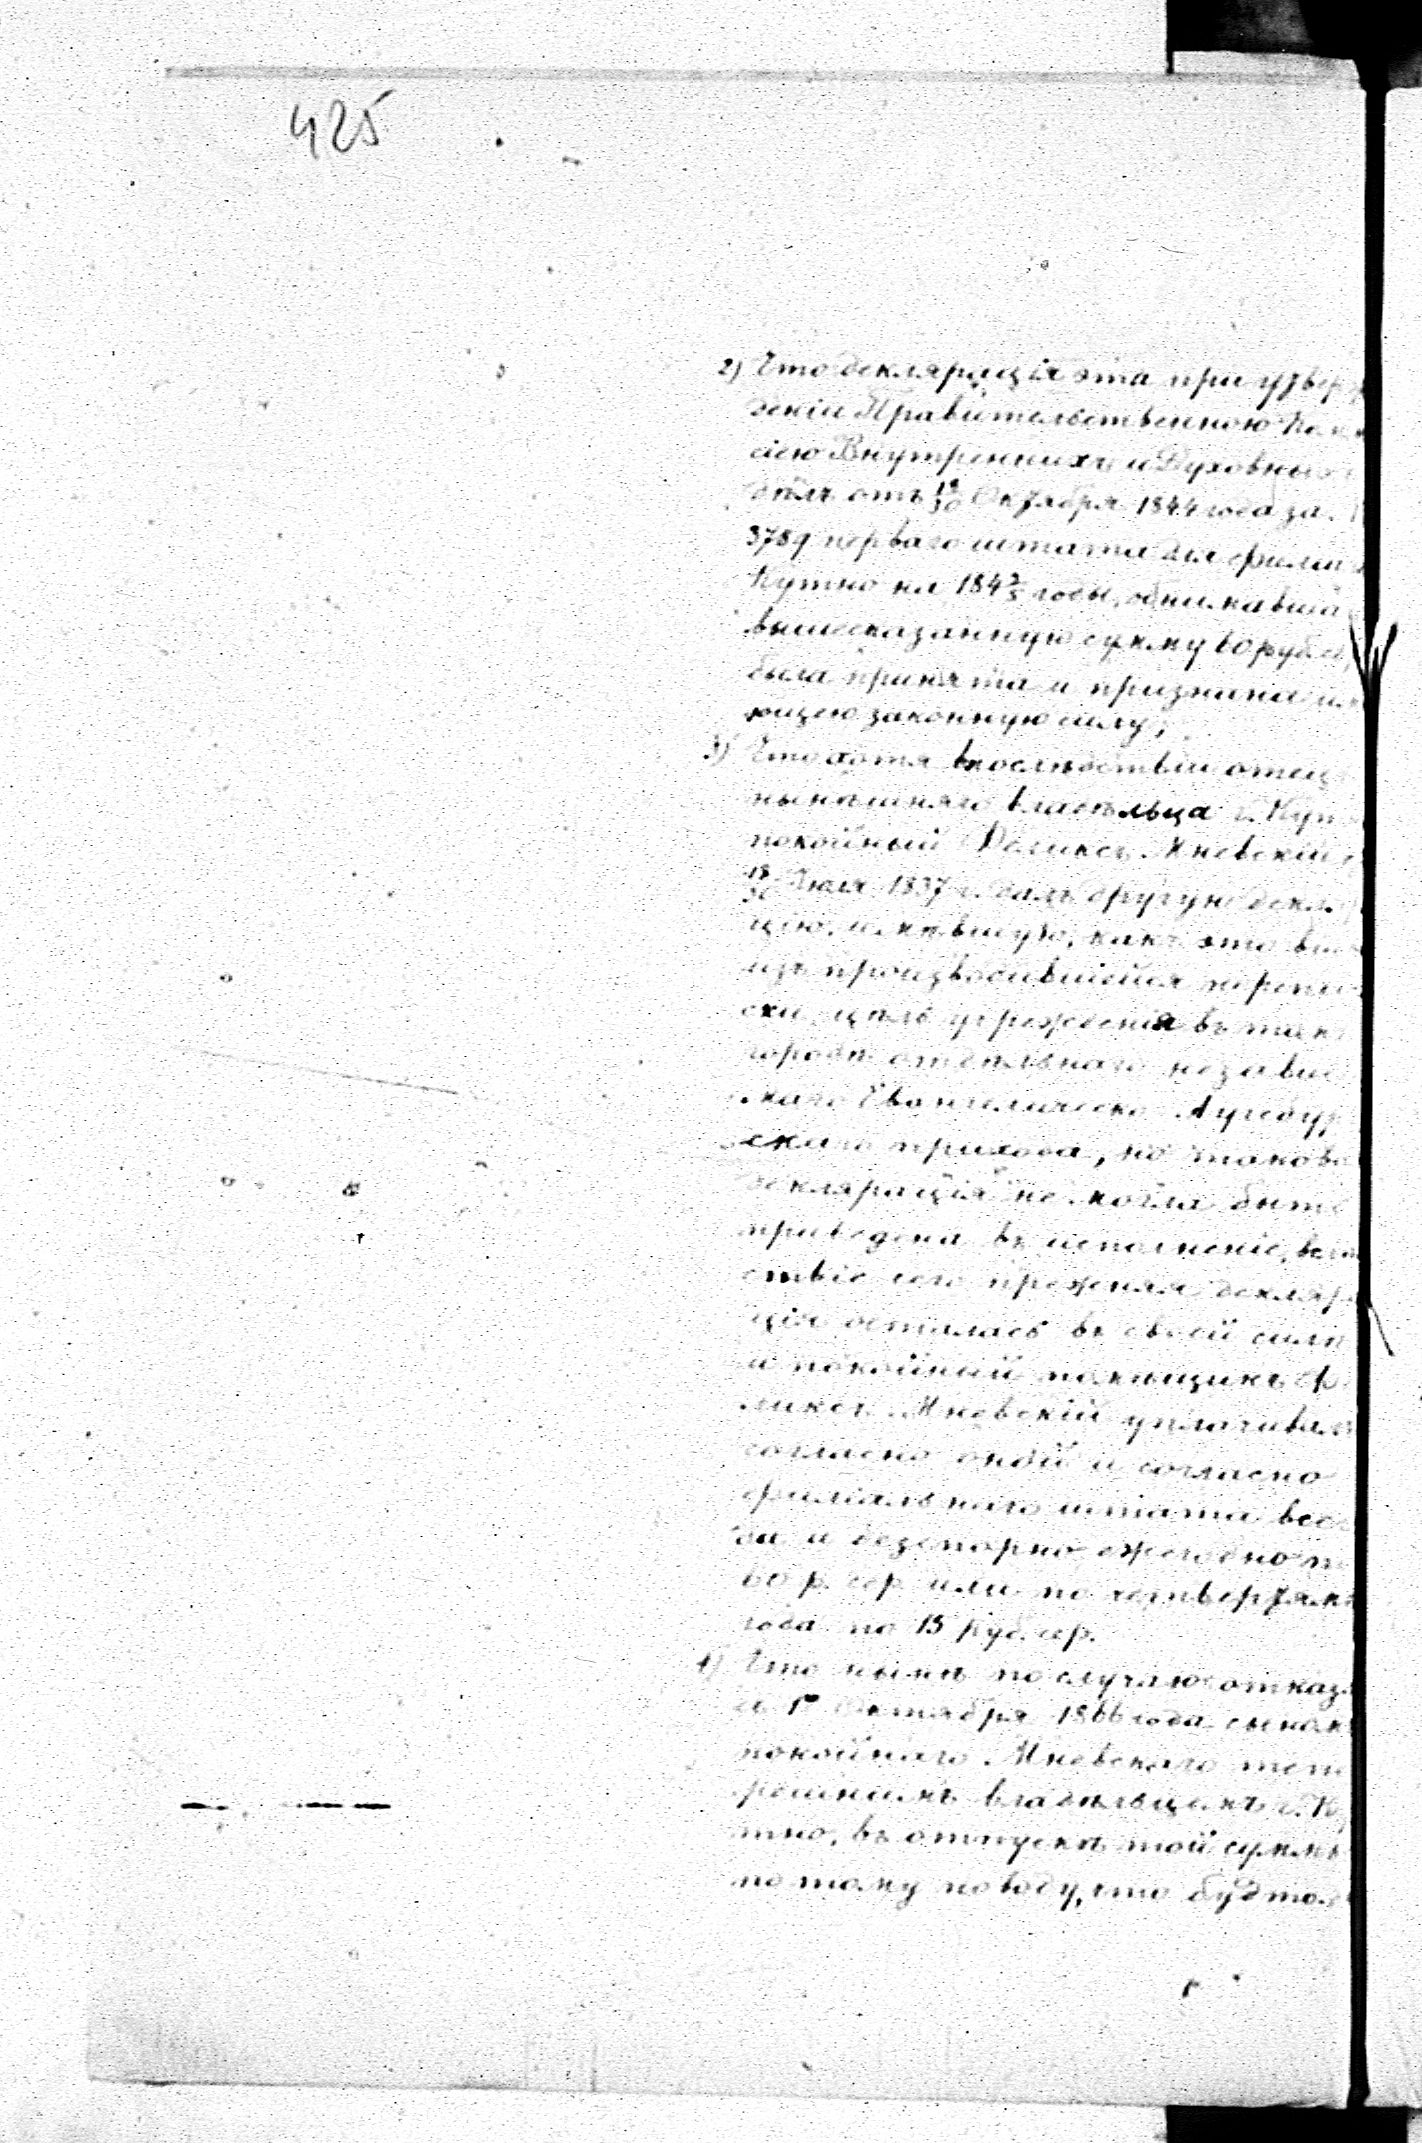 425
2) Что деклярація эта при утвер
жденіи Правительственною Ком
сіею Внутреннихъ и Духовных
дѣлъ отъ 18/30 Октября 1844 года за
3789 перваго штата для филіи
Кутно на 184 2/5 годы, обнимавша
вышесказанную сумму 60 рублей,
была принята и признана им
ющею законную силу;
3) Что хотя впослѣдствіи отецъ
нынѣшняго владѣльца г. Кут
покойный Феликсъ Мневскій
18/30 Іюля 1837 г. далъ другую декл
цію, имѣвшую, какъ это вид
изъ производившейся перепи
ски, цѣль учрежденія въ так
городѣ отдѣльнаго независ
маго Евангелическо Аугсбур
скаго прихода, но такова
декляраціа не могла быть
приведена въ исполненіе, вслѣ
ствіе сего прежняя декляр
ція осталась въ своей силѣ
и покойный помѣщикъ Фе
ликсъ Мневскій уплачивалъ
согласно оной и согласно
филіальнаго штата все
да и безспорно ежегодно по
60 р. сер. или по четвертямъ
года по 15 руб. сер.
4) Что нынѣ по случаю отказа
съ 1го Октября 1866 года сыном
покойнаго Мневскаго тепе
решнимъ владѣльцемъ г. Ку
тно, въ отпускѣ той суммы
по тому поводу, что будто